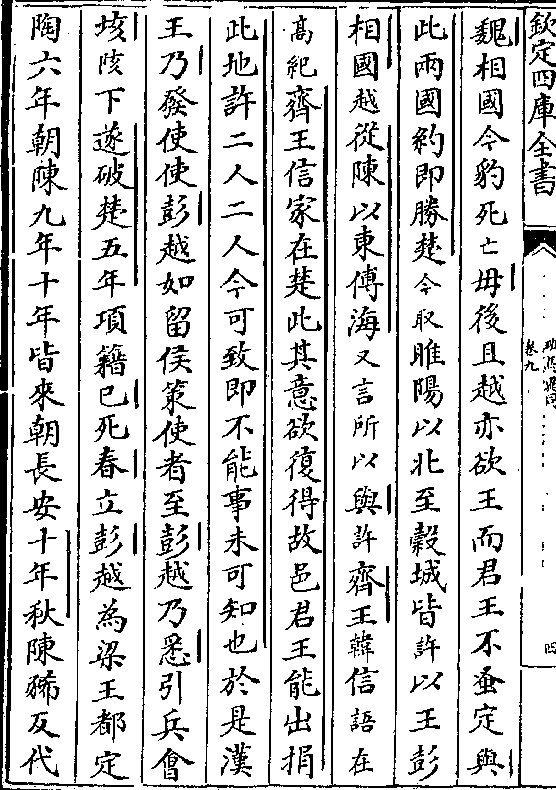 欽定四庫全書
卷九
四
魏相國今豹死亡毋後且越亦欲王而君王不蚤定與
此兩國約即勝楚今取睢陽以北至穀城皆許以王彭
相國越從陳以東傅海又言所以與許齊王韓信語在
高紀齊王信家在楚此其意欲復得故邑君王能出捐
此地許二人二人今可致即不能事未可知也於是漢
王乃發使使彭越如留侯策使者至彭越乃悉引兵會
垓陔下遂破楚五年項籍已死春立彭越為梁王都定
陶六年朝陳九年十年皆來朝長安十年秋陳豨反代